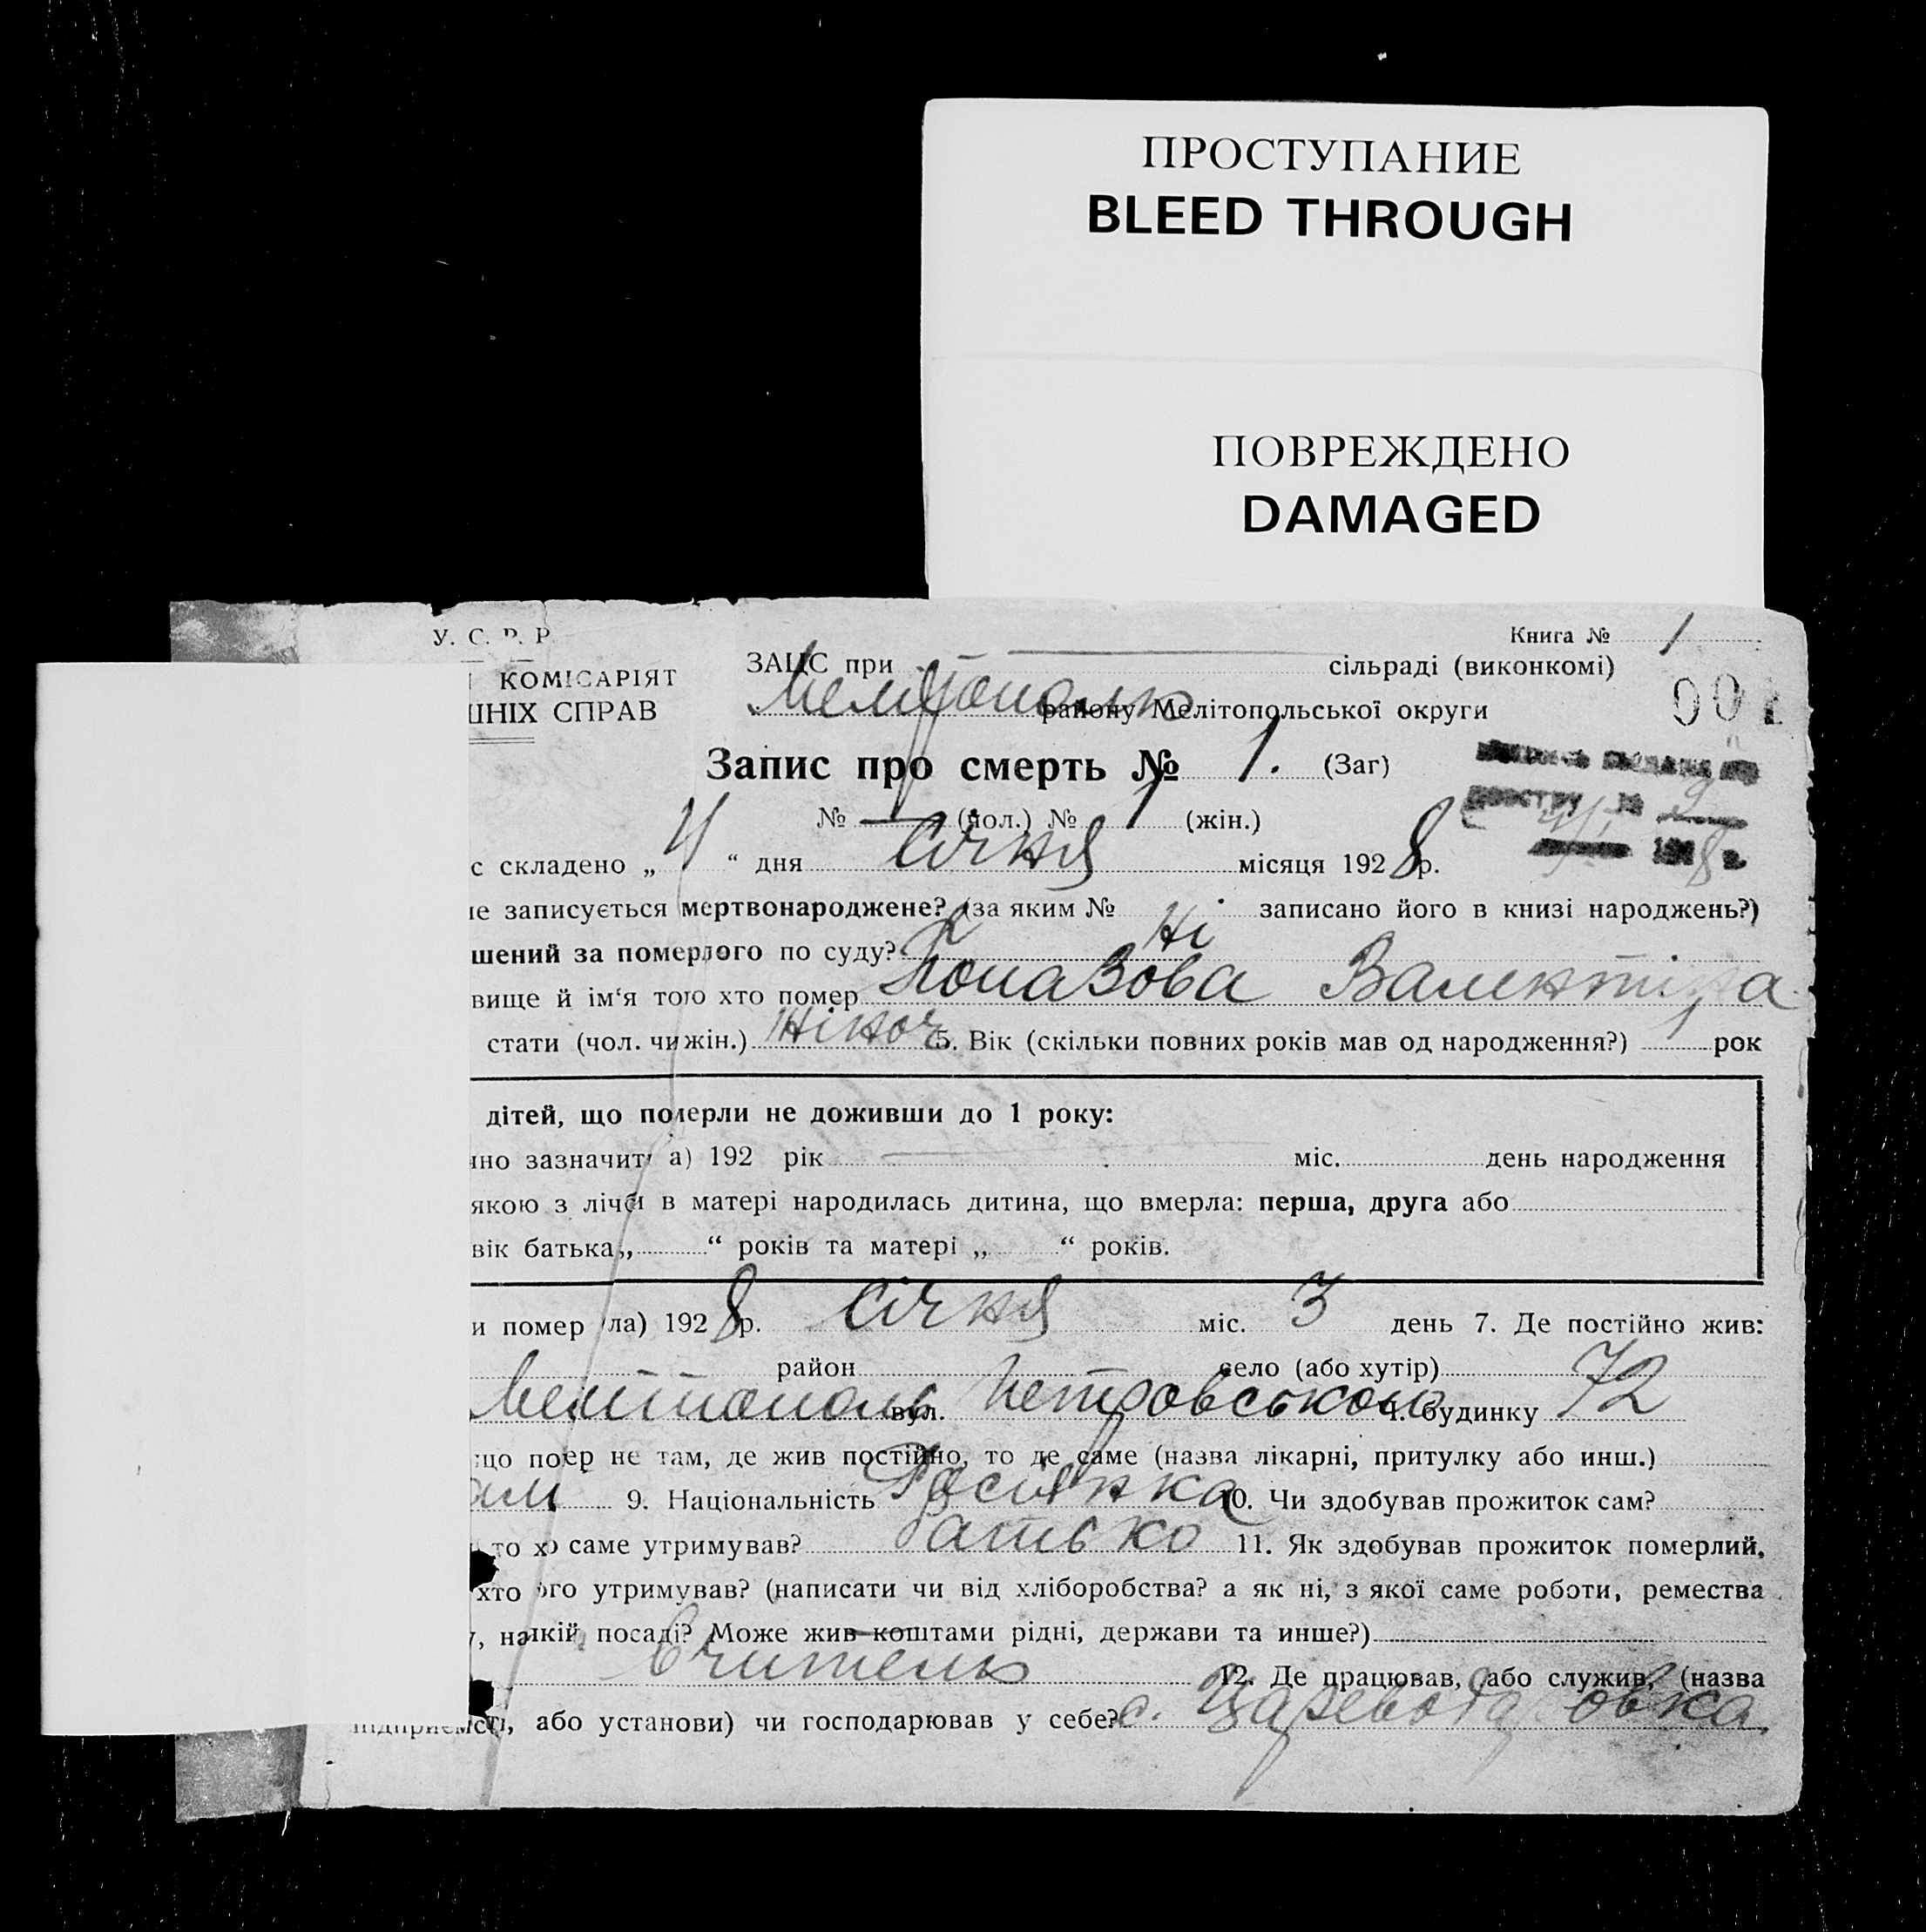 ПРОСТУПАНИЕ
BLEED THROUGH
ПОВРЕЖДЕНО
DAMAGED
У. С. Р. Р.
Книга № 1
КОМІСАРІЯТ
ШНІХ СПРАВ
ЗАЦС при — сільраді (виконкомі)
району Мелітопольської округи
00
Запис про смерть № 1. (Заг)
№ — (чол.) № 1 (жін.)
с складено „4“ дня Січня місяця 1928 р.
не записується мертвонароджене? (за яким № записано його в книзі народжень?)
шений за померлого по суду? Ні
вище й ім‘я того хто помер Валентина
стати (чол. чи жін.) Жіноч 5. Вік (скільки повних років мав од народження?) рок
дітей, що померли не доживши до 1 року:
чно зазначити а) 192 рік — міс. день народження
якою з лічби в матері народилась дитина, що вмерла: перша, друга або
вік батька „ “ років та матері „ “ років.
и помер (ла) 1928 р. Січня міс. 3 день 7. Де постійно жив:
район село (або хутір)
Мелітополь вул. Петровського ч. будинку 72
що помер не там, де жив постійно, то де саме (назва лікарні, притулку або инш.)
ам 9. Національність Росіянка 10. Чи здобував прожиток сам?
то хто саме утримував? батько 11. Як здобував прожиток померлий,
хто його утримував? (написати чи від хліборобства? а як ні, з якої саме роботи, ремества
у, на якій посаді? Може жив коштами рідні, держави та инше?)
Вчитель 12. Де працював, або служив, (назва
підприємсті, або установи) чи господарював у себе? с.